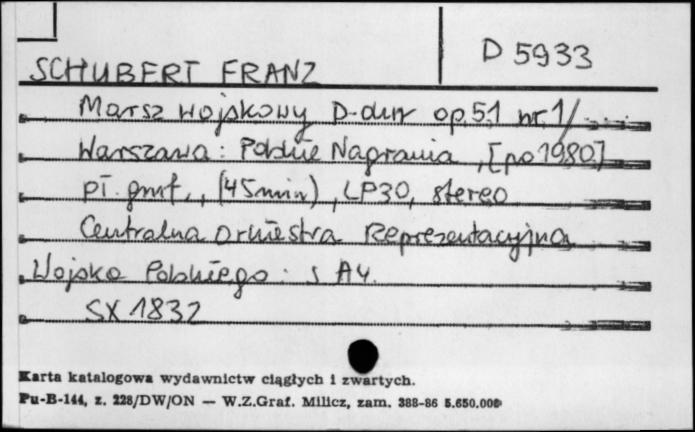 D 5933
SCHUBERT FRANZ
Marsz wojskowy D-dur op.51 nr.1/
Warszawa: Polskie Nagrania, [po 1980]
pł. gmf., (45 min), LP30, stereo
Centralna Orkiestra Reprezentacyjna
Wojska Polskiego. s A4.
SX 1832
Karta katalogowa wydawnictw ciągłych i zwartych.
Pu-B-144, z. 228/DW/ON — W.Z.Graf. Milicz, zam. 388-86 5.650.000